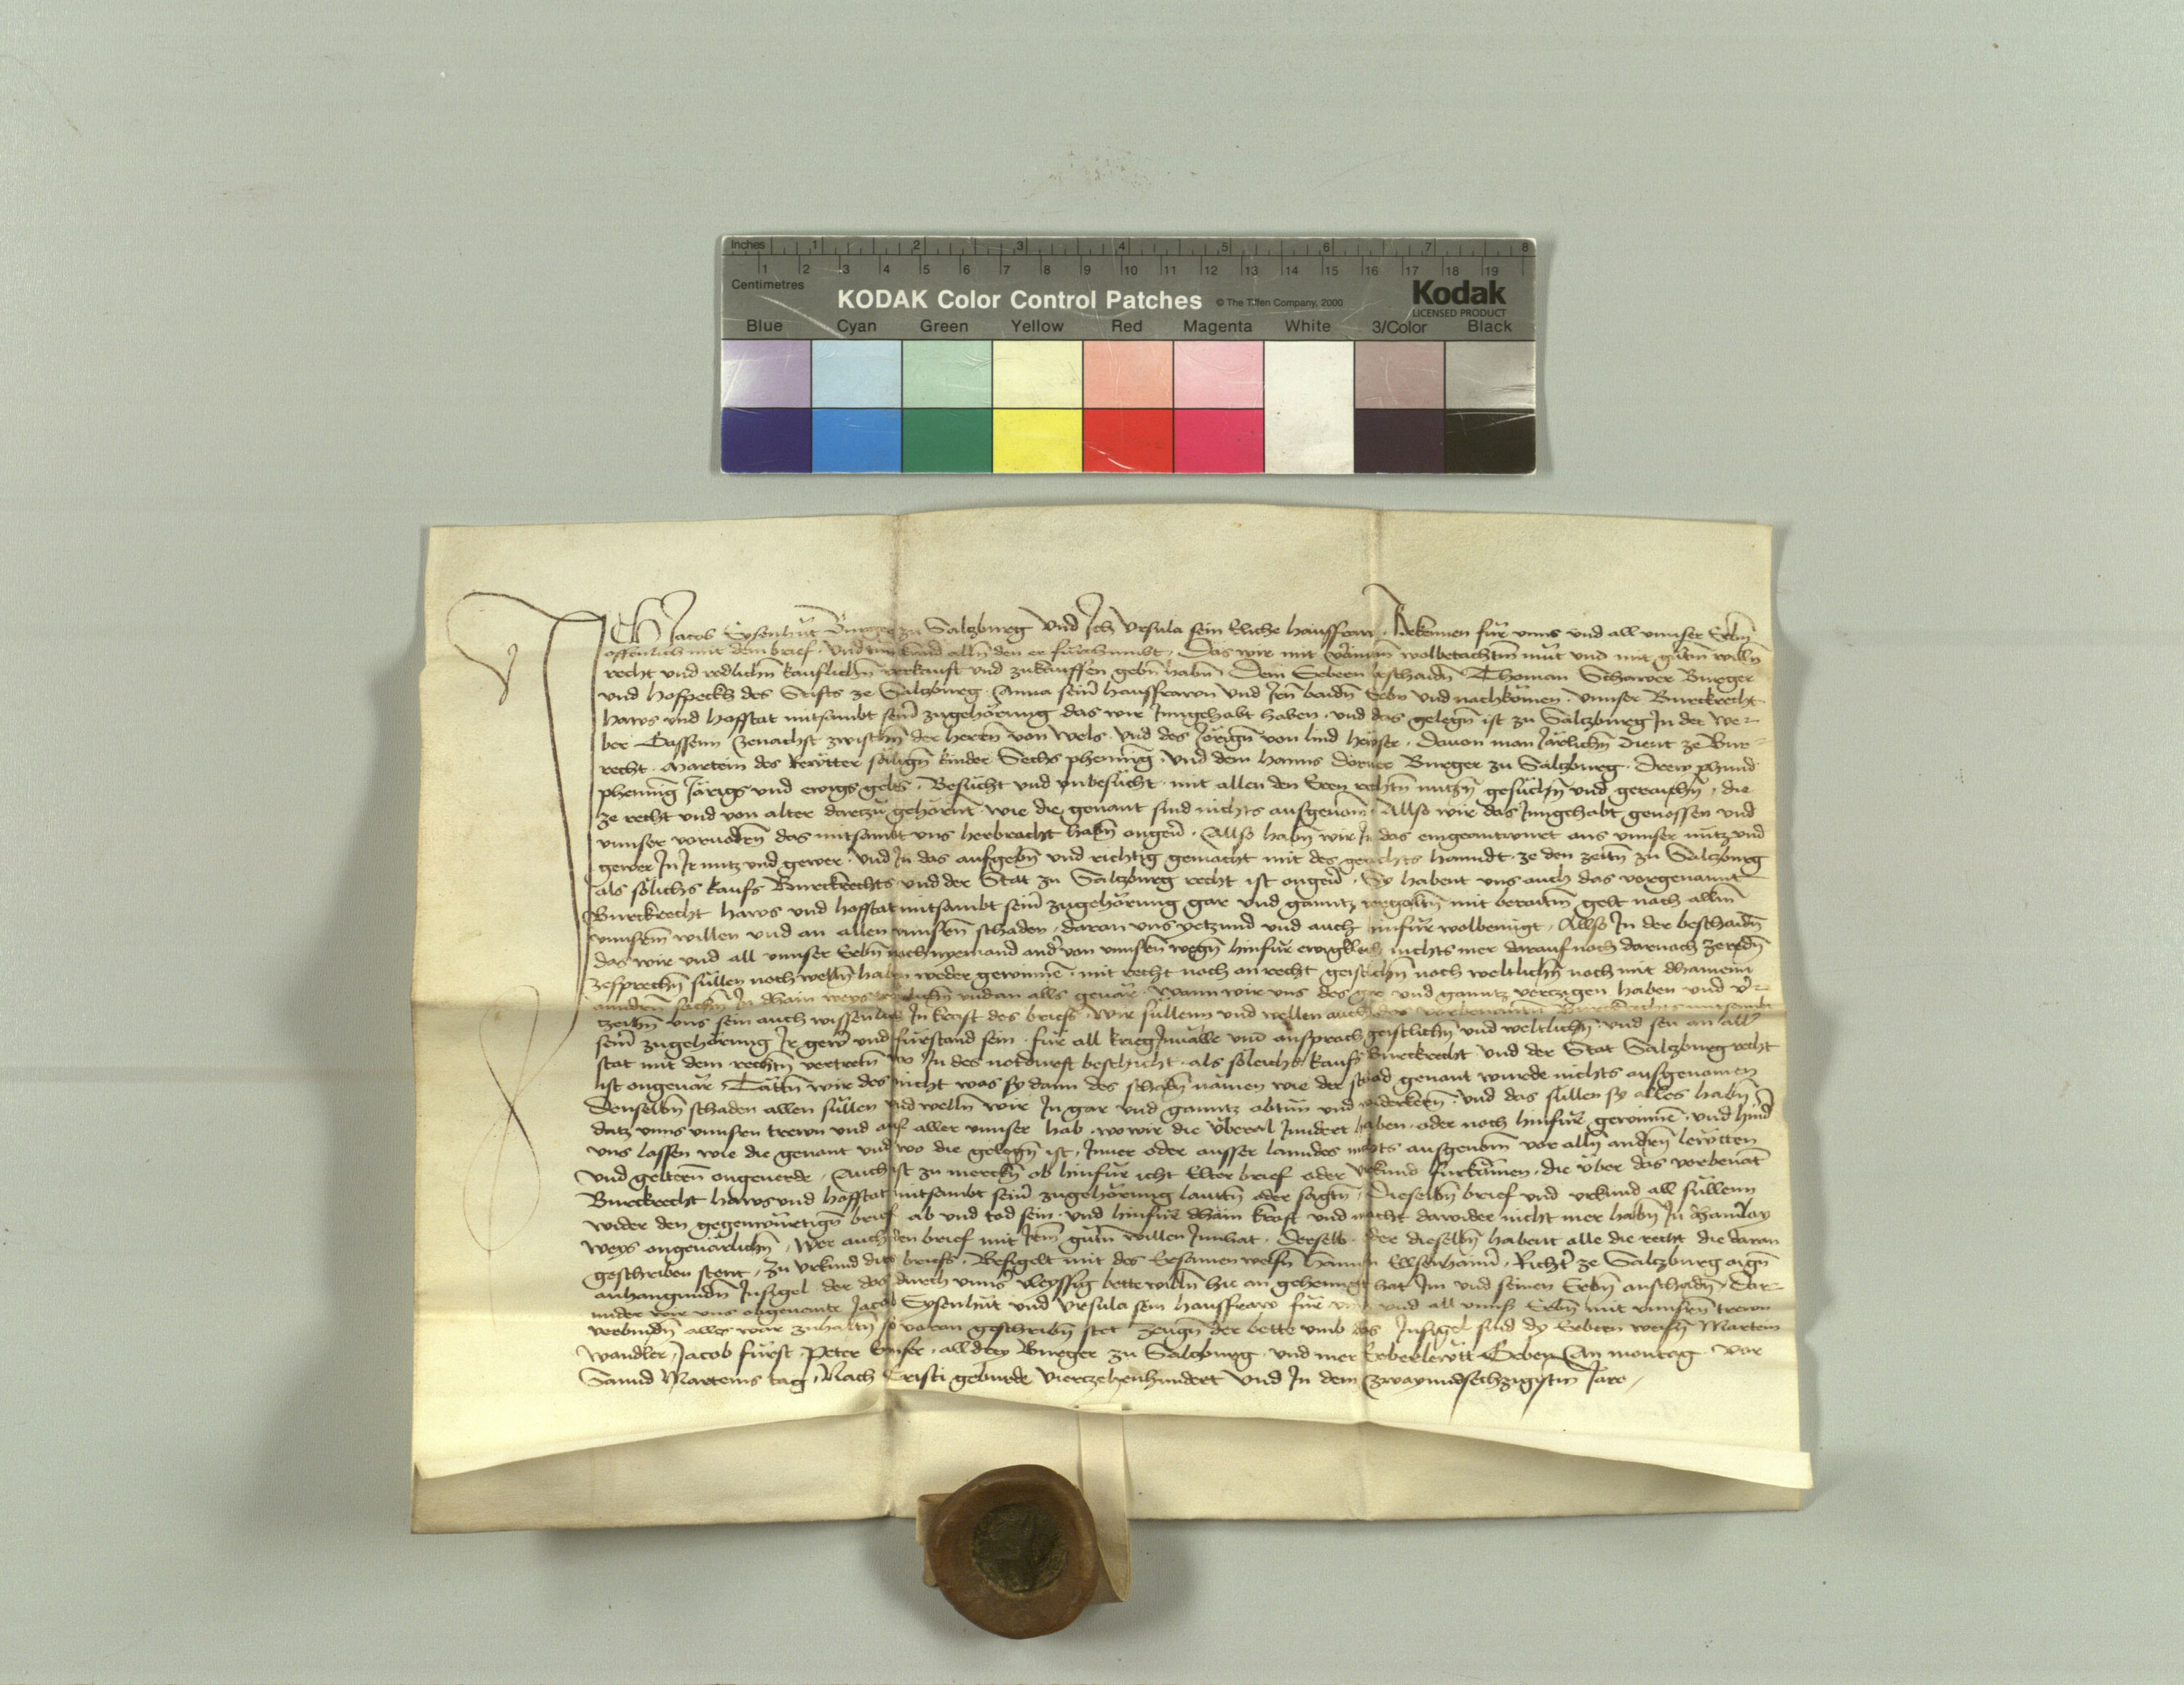 Inches 1 2 3 4 5 6 7 8
1 2 3 4 5 6 7 8 9 10 11 12 13 14 15 16 17 18 19
Centimetres
KODAK Color Control Patches © The Tiffen Company, 2000 Kodak
LICENSED PRODUCT
Blue Cyan Green Yellow Red Magenta White 3/Color Black
ICh Jacob Eysenhůt Burger zu Salzburg Vnd Ich Vrsula sein Eliche hausfraw Bekennen für vnns vnd all vnnser Erbn̄
offenlich mit dem brief vnd tun kund alln̄ den er fürchumbt Das wir mit wolbetachtm̄ můt vnd mit gůtm̄ willn̄
recht vnd redlichn̄ kauflichn̄ verkauft vnd zukauffen gebn̄ habn̄ Dem Erbern beschaidn̄ Thoman Scharer Burger
vnd hofpeckh des Stifts ze Salzburg Anna sein̄ hausfrawn vnd Irn̄ baidn̄ Erbn vnd nachkömen vnnser Burckrecht
haws vnd hofstat mitsambt sein̄ zugehörung das wir Inngehabt haben vnd das gelegn̄ ist zu Salzburg In der We-
ber Gassenn Zenachst zwischn̄ der herrn̄ von wels vnd des Jörign̄ von lind hewser Dauon man Järlichn̄ dient ze Bur-
recht Martein des Rewtter sälign̄ kinder Sechs phenniḡ vnd dem Hanns Dorner Burger zu Salzburg Drew phund
phenniḡ Järigs vnd ewigs gelts Besucht vnd vnbesucht mit allen den Eren rechtn̄ nutzn̄ gesůchn̄ vnd gerauchn̄ die
ze recht vnd von alter dartzů gehörnt wie die genant sind nichts ausgenom̄ Allso wir das Inngehabt genossen vnd
vnnser voruodrn̄ das mitsambt vns herbracht habn̄ ongeu̎ Allso habn̄ wir In das eingeantwurt aus vnnser nutz vnd
gewer In Ir nutz vnd gewer vnd In das aufgebn̄ vnd richtig gemacht mit des gerichts hanndt ze den zeitn̄ zu Salzburg
als sölichs kaufs Burckrechts vnd der Stat zu Salzburg recht ist ongeu̎ Sy habent vns auch das vorgenannt
Burckrecht haws vnd hofstat mitsambt sein̄ zugehörung gar vnd ganntz vergoltn̄ mit beraitm̄ gelt nach allm̄
vnnserm willen vnd an allen vnnsern̄ schaden daran vns yetzund vnd auch hinfür wolbenügt Allso In der beschaidn̄
das wir vnd all vnnser Erbn̄ noch nyemand and̎ von vnnsern̄ wegn̄ hinfür ewigklich nichts mer darauf noch darnach zeredn̄
zesprechn̄ süllen noch welln̄ habn weder gewinnē mit recht noch an recht geistlichn̄ noch weltlichn̄ noch mit dhainem
anndern̄ sachn̄ In dhain weys vnd an alls geuär Wann wir vns des gar vnd ganntz verczigen haben vnd v̎-
zeihn̄ vns sein auch wissentlich In kraft des briefs Wir süllenn vnd wellen auch des vorbenantn̄ Burckrechts mitsambt
sein̄ zugehörung Ir gewer vnd fürstand sein für all krieg Inuälle vnd ansprach geistlichn̄ vnd weltlichn̄ vnd sew an aller
stat mit dem rechtn̄ vertretn̄ wo In des notdurft beschicht als söleichs kaufs Burckrecht vnd der Stat Salzburg recht
ist ongeuär Tättn̄ wir des nicht was sy dann des schadn̄ nämen wie der schad genant wurde nichts ausgenomen
Denselbn̄ schaden allen süllen vnd welln̄ wir In gar vnd ganntz abtun vnd widerkern̄ vnd das süllen sy alles habn̄
datz vnns vnnsrn trewn vnd auf aller vnnser hab wo wir die überal Inndert haben oder noch hinfür gewinnē vnd hind̎
vns lassen wie die genant vnd wo die gelegn̄ ist Inner oder ausser lanndes nichts ausgenom̄ vor alln̄ andern̄ lewtten
vnd geltern̄ ongeuerde Auch ist zu merckn̄ ob hinfür icht Elter brief oder vrkund fürkämen die über das vorbenāt
Burckrecht haws vnd hofstat mitsambt sein̄ zugehörung lauttn̄ oder sagtn̄ Dieselbn̄ brief vnd vrkund all süllenn
wider den gegenwürtign̄ brief ab vnd tod sein vnd hinfür dhain kraft vnd macht dawider nicht mer habn̄ In dhainlay
weys ongeuärlichn̄ Wer auch den brief mit Irm̄ gůtn̄ willen Innhat Derselb oder dieselbn̄ habent alle die recht die daran
geschriben stent Zu vrkund ditz briefs Besigelt mit des Ersamen weisn̄ Hannsen Elsenhaim̎ Richt̎ ze Salzburg aign̄
anhangundn̄ Insigel der das durch vnns̎ vleyssig bette willn̄ hie an gehenngt hat Im vnd seinen Erbn̄ anschadn̄ Dar-
under wir vns obgenante Jacob Eysenhůt vnd Vrsula sein hausfraw für vns vnd all vnns̎ Erbn̄ mit vnnsern̄ trewn
verbindn̄ alles war zuhaltn̄ so voran geschribn̄ stet Zeugn̄ der bette vmb das Insigel sind dy Erbern weisn̄ Martein
Wandler Jacob fürst Peter all drey Burger zu Salzburg vnd mer Erberlewtt Geben An montag Vor
Sannd Marteins tag Nach Cristi geburde Vierczehenhundert Vnd In dem Zwayundsechzigistm̄ Jare